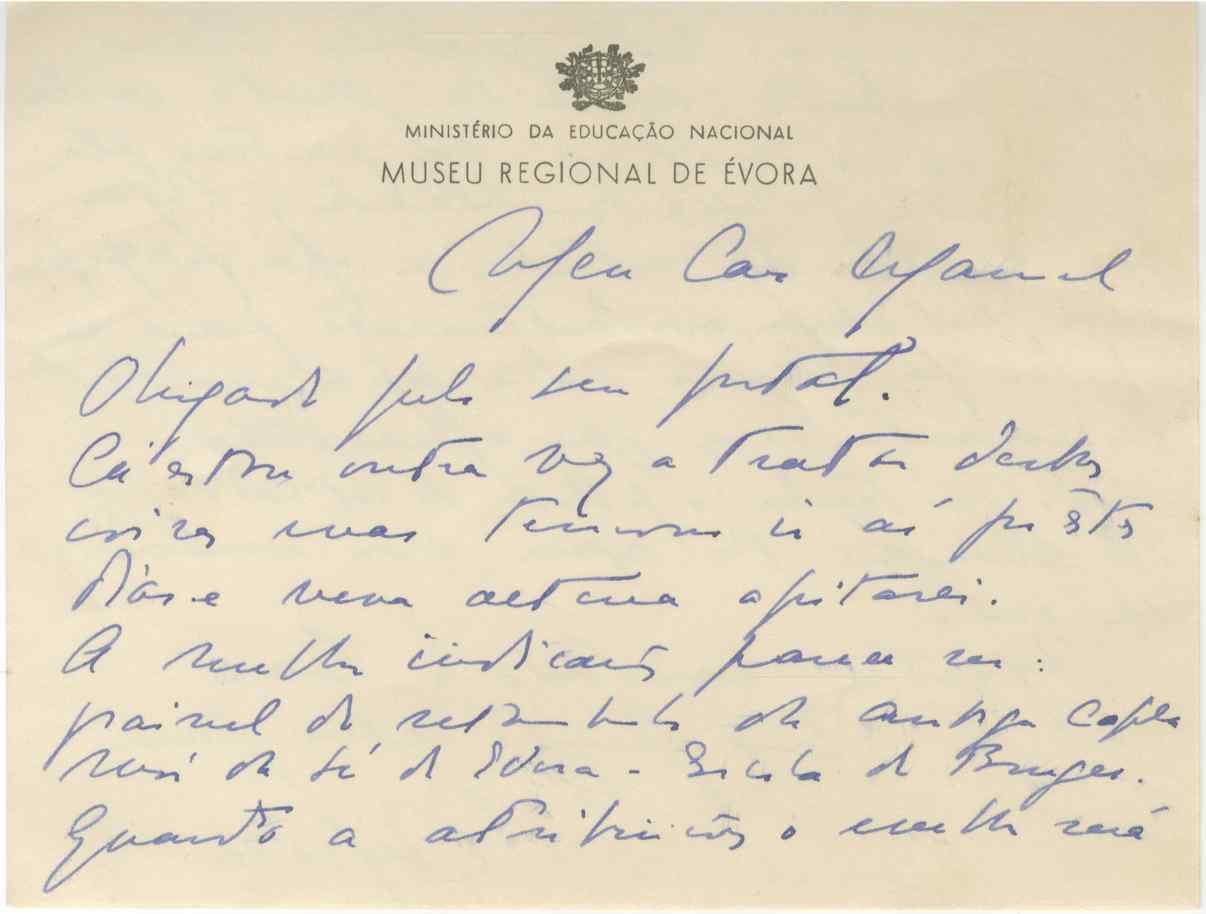 MINISTÉRIO DA EDUCAÇÃO NACIONAL
MUSEU REGIONAL DE ÉVORA
Meu Caro Manuel
Obrigado pelo seu postal.
Cá estou outra vez a tratar destas
coisas mas tenciono ir aí por êstes
dias e nessa altura apitarei.
A melhor indicação parece ser:
painel do retábulo da antiga Capela
mór da Sé de Évora - Escola de Bruges.
Quanto a atribuições o melhor será